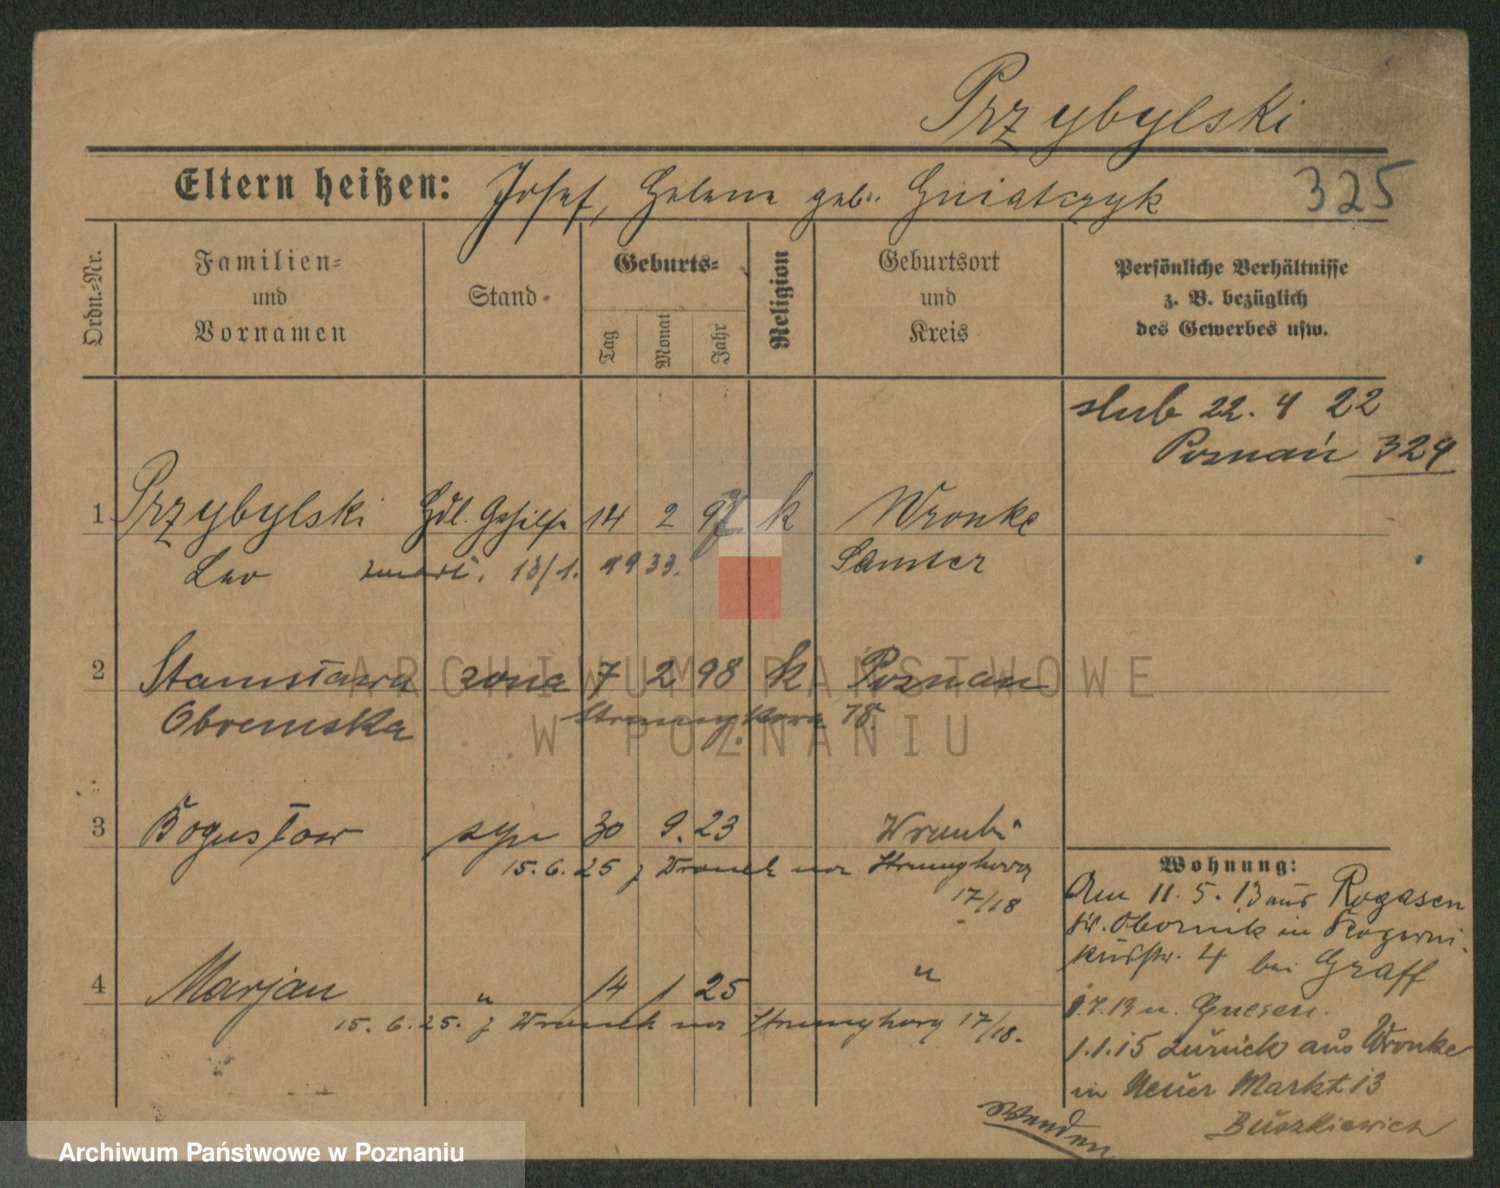 Przybylski
Eltern heißen: Josef, Helene geb. Gniatczyk
325
Ordn.-Nr.
Familien-
und
Vornamen
Stand
Geburts-
Tag
Monat
Jahr
Religion
Geburtsort
und
Kreis
Persönliche Verhältnisse
z. B. bezüglich
des Gewerbes usw.
slub 22. 4 22
Poznań 324
1 Przybylski Hdl. Gehilfe 14 2 97 k Wronke
Leo zmarł. 13/1. 1933. Samter
2 Stanisława żona 7 2 98 k Poznań
Obremska 18.
3 Bogusław syn 30 9. 23 Wronki
15. 6. 25 z Wronek na
17/18
4 Marjan " 14 1 25 "
15. 6. 25. z Wronek na 17/18.
Wohnung:
Am 11. 5. 13 aus Rogasen
Kr. Obornik in
4 bei Graff
n. Gnesen.
1.1.15 zurück aus Wronke
in Neuer Markt 13
Buszkiewicz
Wenden
ARCHIWUM PAŃSTWOWE
W POZNANIU
Archiwum Państwowe w Poznaniu